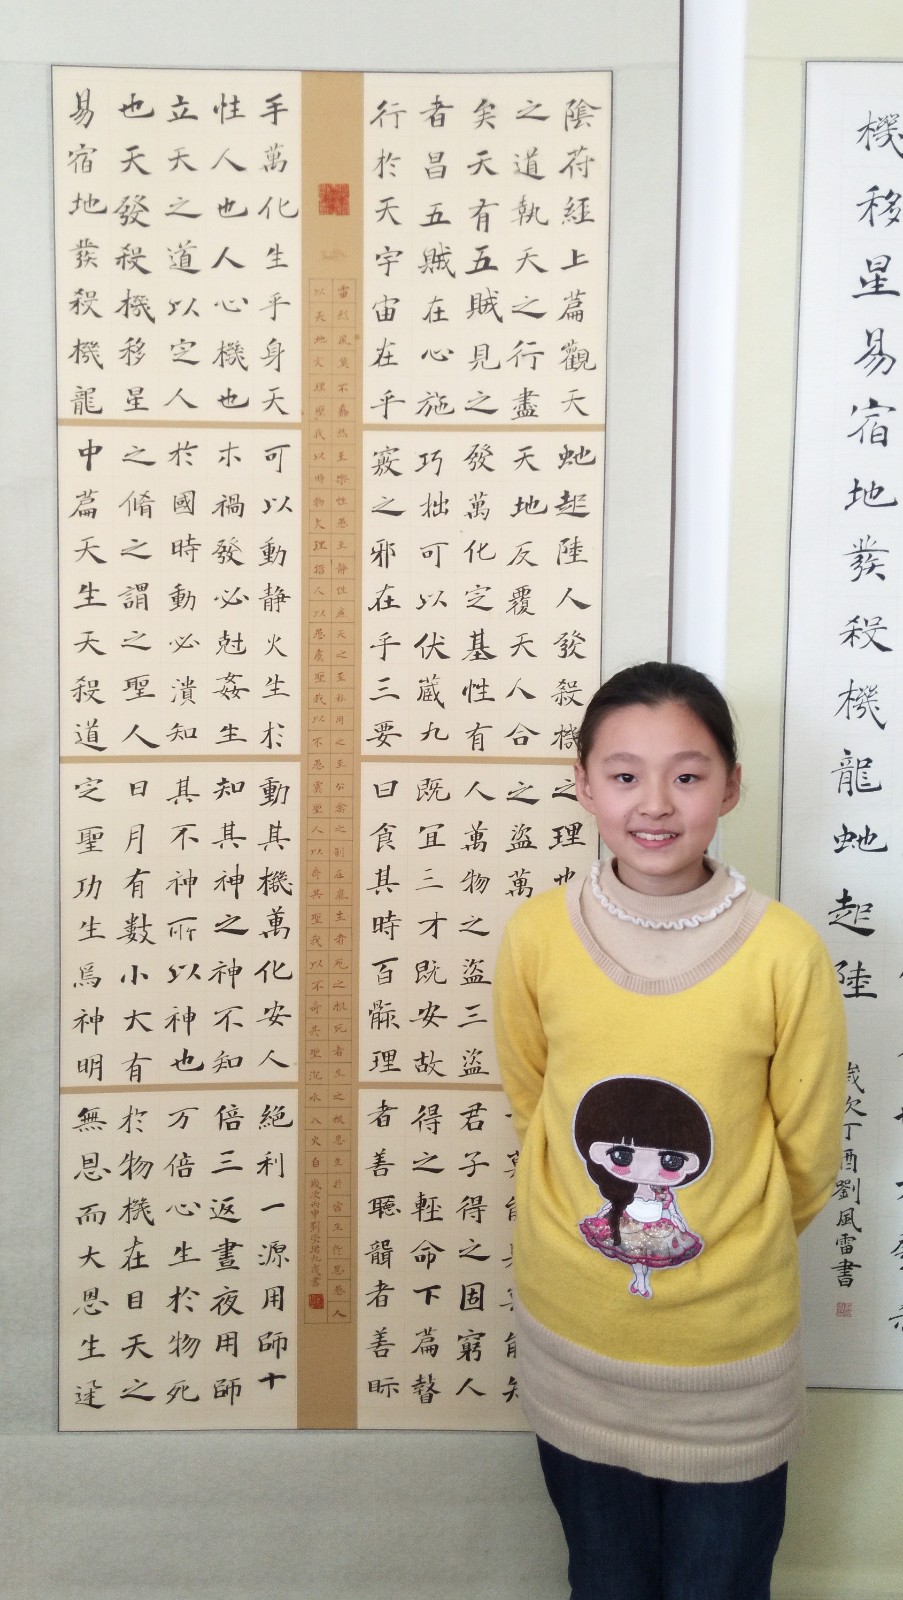 陰苻經上篇觀天
之道執天之行盡
矣天有五賊見之
者昌五賊在心施
行於天宇宙在乎
手萬化生乎身天
性人也人心機也
立天之道以定人
也天發殺機移星
易宿地發殺機龍
虵起陸人發殺機
天地反覆天人合
發萬化定基性有
巧拙可以伏藏九
竅之邪在乎三要
可以動静火生於
木禍發必尅姦生
於國時動必潰知
之脩之謂之聖人
中篇天生天殺道
之理也
之盜萬
人萬物之盜三盜
既宜三才既安故
曰食其時百骸理
動其機萬化安人
知其神之神不知
其不神所以神也
日月有數小大有
定聖功生焉神明
君子得之固窮人
得之輕命下篇瞽
者善聽聾者善眎
絶利一源用師十
倍三返晝夜用師
万倍心生於物死
於物機在目天之
無恩而大恩生迅
雷烈風莫不蠢然至樂性愚至静性廉天之至私用之至公禽之制在氣生者死之根死者生之根恩生於害生於恩愚人
以天地文理聖我以時物文理哲人以愚虞聖我以不愚虞聖人以奇其聖我以不奇其聖沉水入火自
歲次丙申劉九歲書
機移星易宿地發殺機龍虵起陸
歲次丁酉劉風雷書